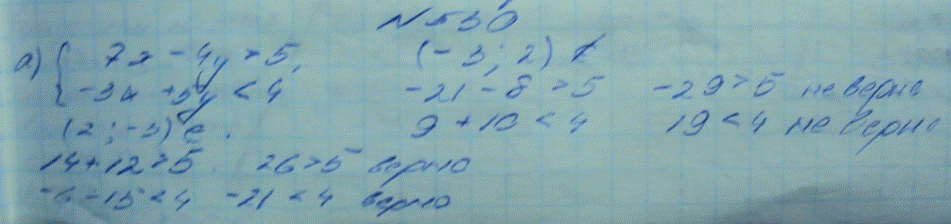 №530
а) { 7x - 4y > 5,
-3x + 5y < 4
(2; -3) ∈.
14 + 12 > 5 26 > 5 верно
-6 - 15 < 4 -21 < 4 верно
(-3; 2) ∉
-21 - 8 > 5 -29 > 5 не верно
9 + 10 < 4 19 < 4 не верно